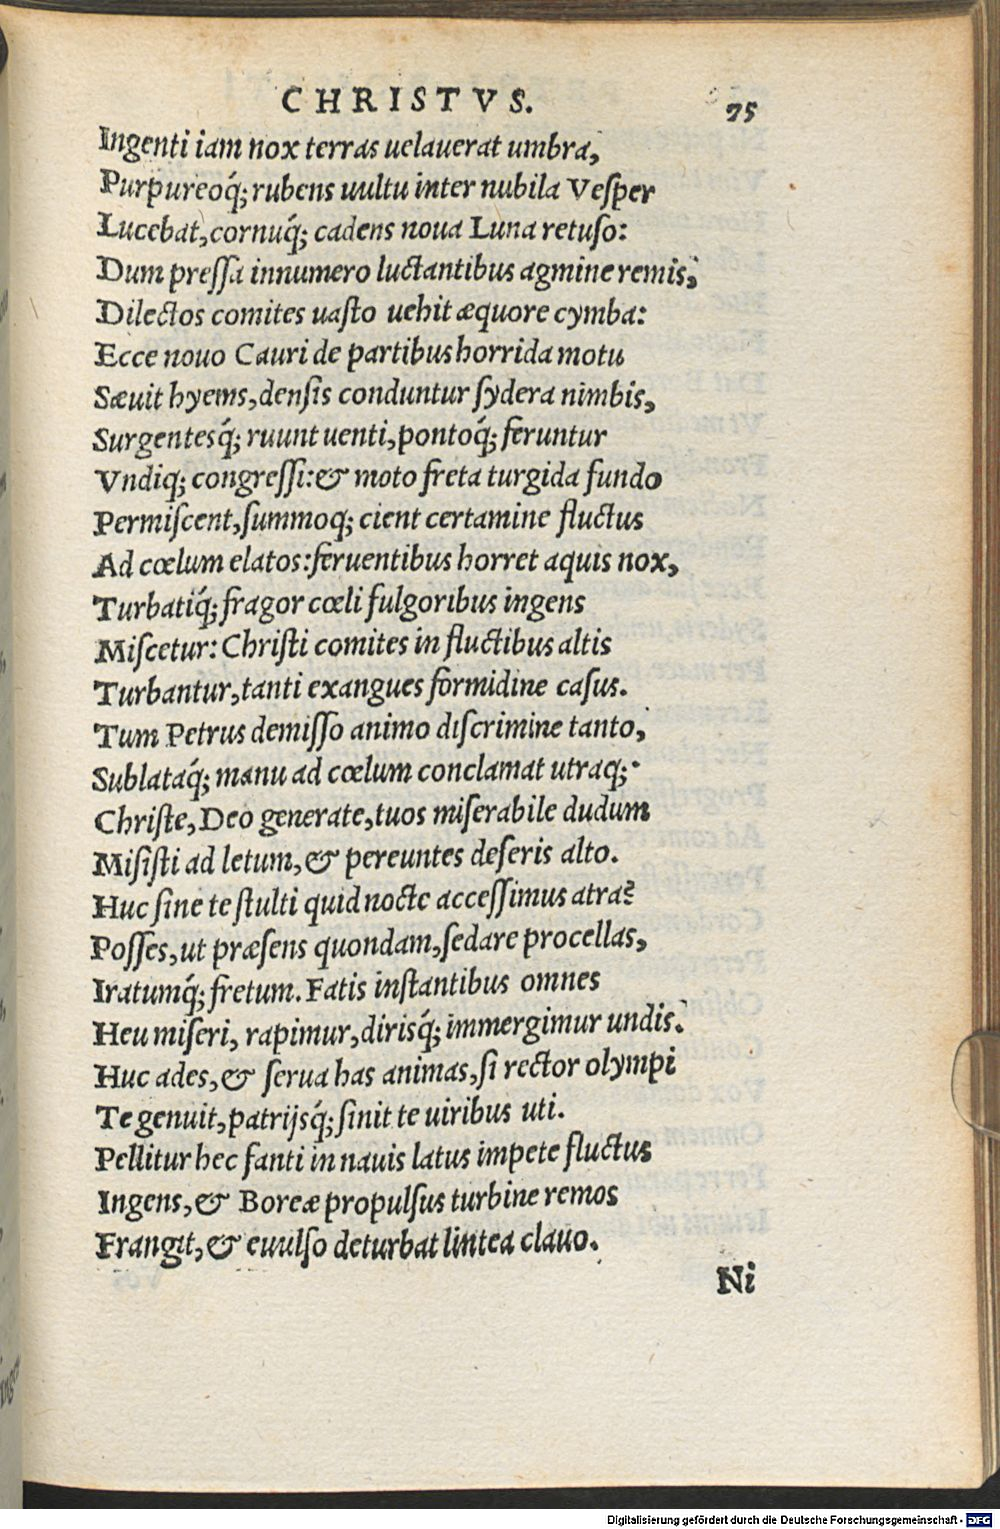 CHRISTVS. 75
Ingenti iam nox terras uelauerat umbra,
Purpureoq́; rubens uultu inter nubila Veſper
Lucebat, cornuq́; cadens noua Luna retuſo:
Dum preſſa innumero luctantibus agmine remis,
Dilectos comites uaſto uehit æquore cymba:
Ecce nouo Cauri de partibus horrida motu
Sæuit hyems, denſis conduntur ſydera nimbis,
Surgentesq́; ruunt uenti, pontoq́; feruntur
Vndiq; congreſſi: & moto freta turgida fundo
Permiſcent, ſummoq; cient certamine fluctus
Ad cœlum elatos: feruentibus horret aquis nox,
Turbatiq́; fragor cœli fulgoribus ingens
Miſcetur: Chriſti comites in fluctibus altis
Turbantur, tanti exangues formidine caſus.
Tum Petrus demiſſo animo diſcrimine tanto,
Sublataq́; manu ad cœlum conclamat utraq;
Chriſte, Deo generate, tuos miſerabile dudum
Miſiſti ad letum, & pereuntes deſeris alto.
Huc ſine te ſtulti quid nocte acceſſimus atra?
Poſſes, ut præſens quondam, ſedare procellas,
Iratumq́; fretum. Fatis inſtantibus omnes
Heu miſeri, rapimur, dirisq́; immergimur undis.
Huc ades, & ſerua has animas, ſi rector olympi
Te genuit, patrijsq́; ſinit te uiribus uti.
Pellitur hec fanti in nauis latus impete fluctus
Ingens, & Boreæ propulſus turbine remos
Frangit, & euulſo deturbat lintea clauo.
Ni
Digitalisierung gefördert durch die Deutsche Forschungsgemeinschaft - DFG